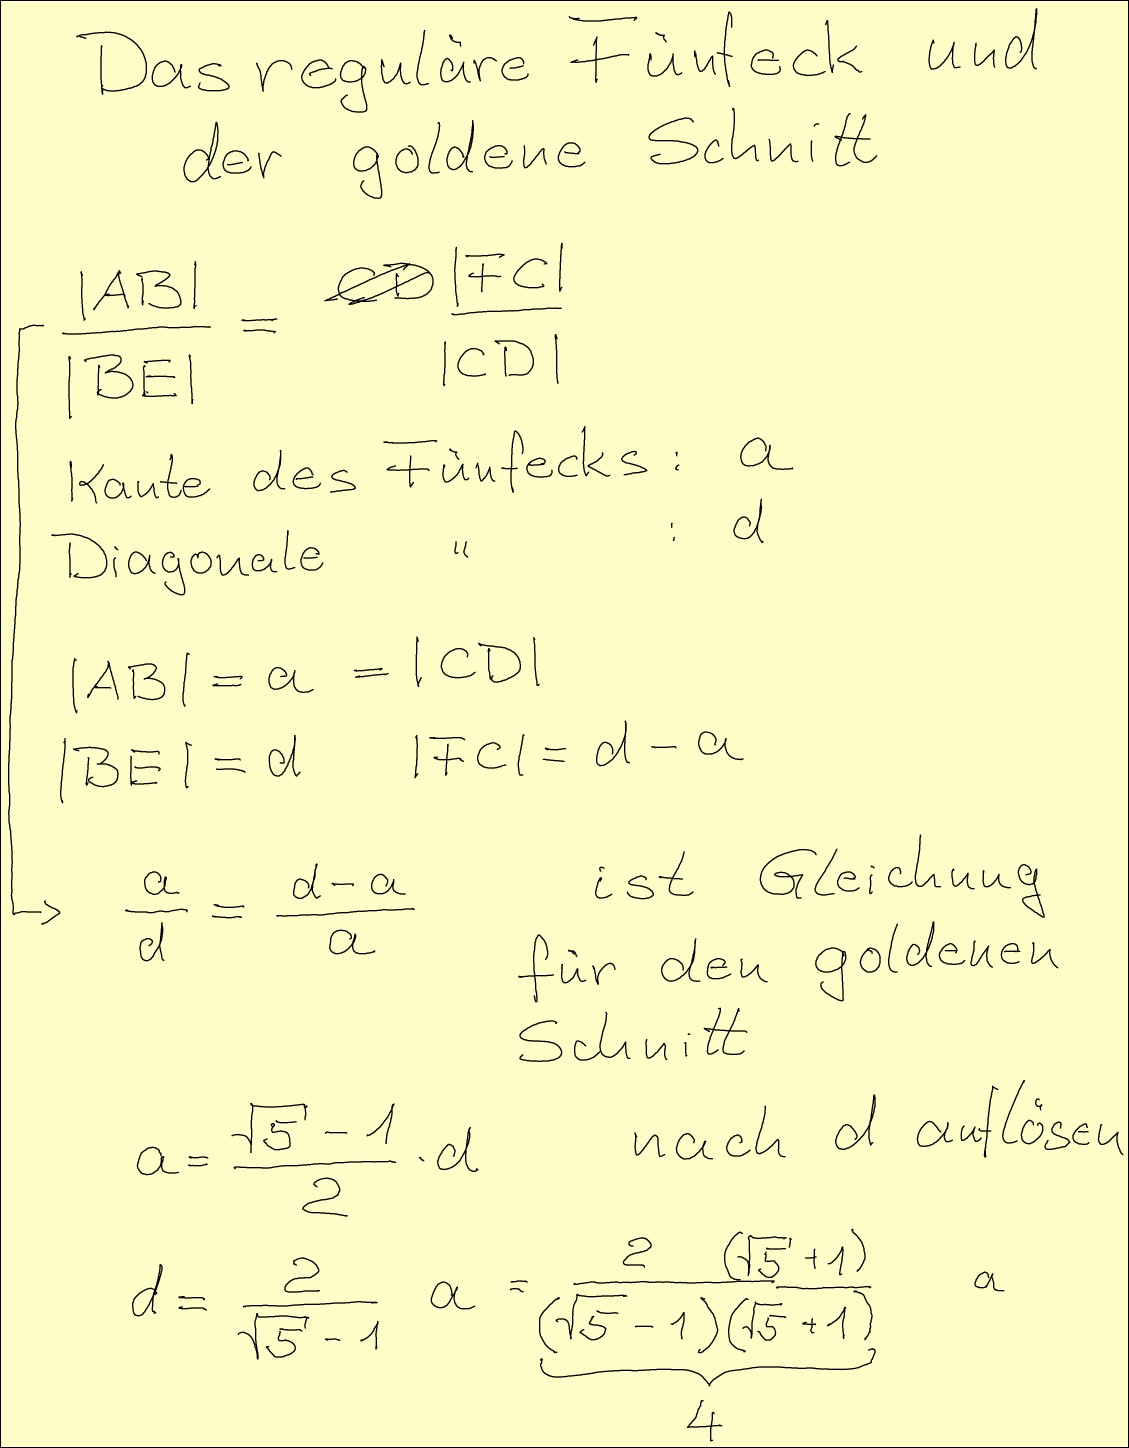 Das reguläre Fünfeck und
der goldene Schnitt
|AB| / |BE| = ~~CD~~ |FC| / |CD|
Kante des Fünfecks : a
Diagonale " : d
|AB| = a = |CD|
|BE| = d |FC| = d - a
→ a/d = (d-a)/a ist Gleichung
für den goldenen
Schnitt
a = (√5 - 1)/2 · d nach d auflösen
d = 2/(√5 - 1) a = 2 (√5 + 1) / ((√5 - 1)(√5 + 1)) a
4